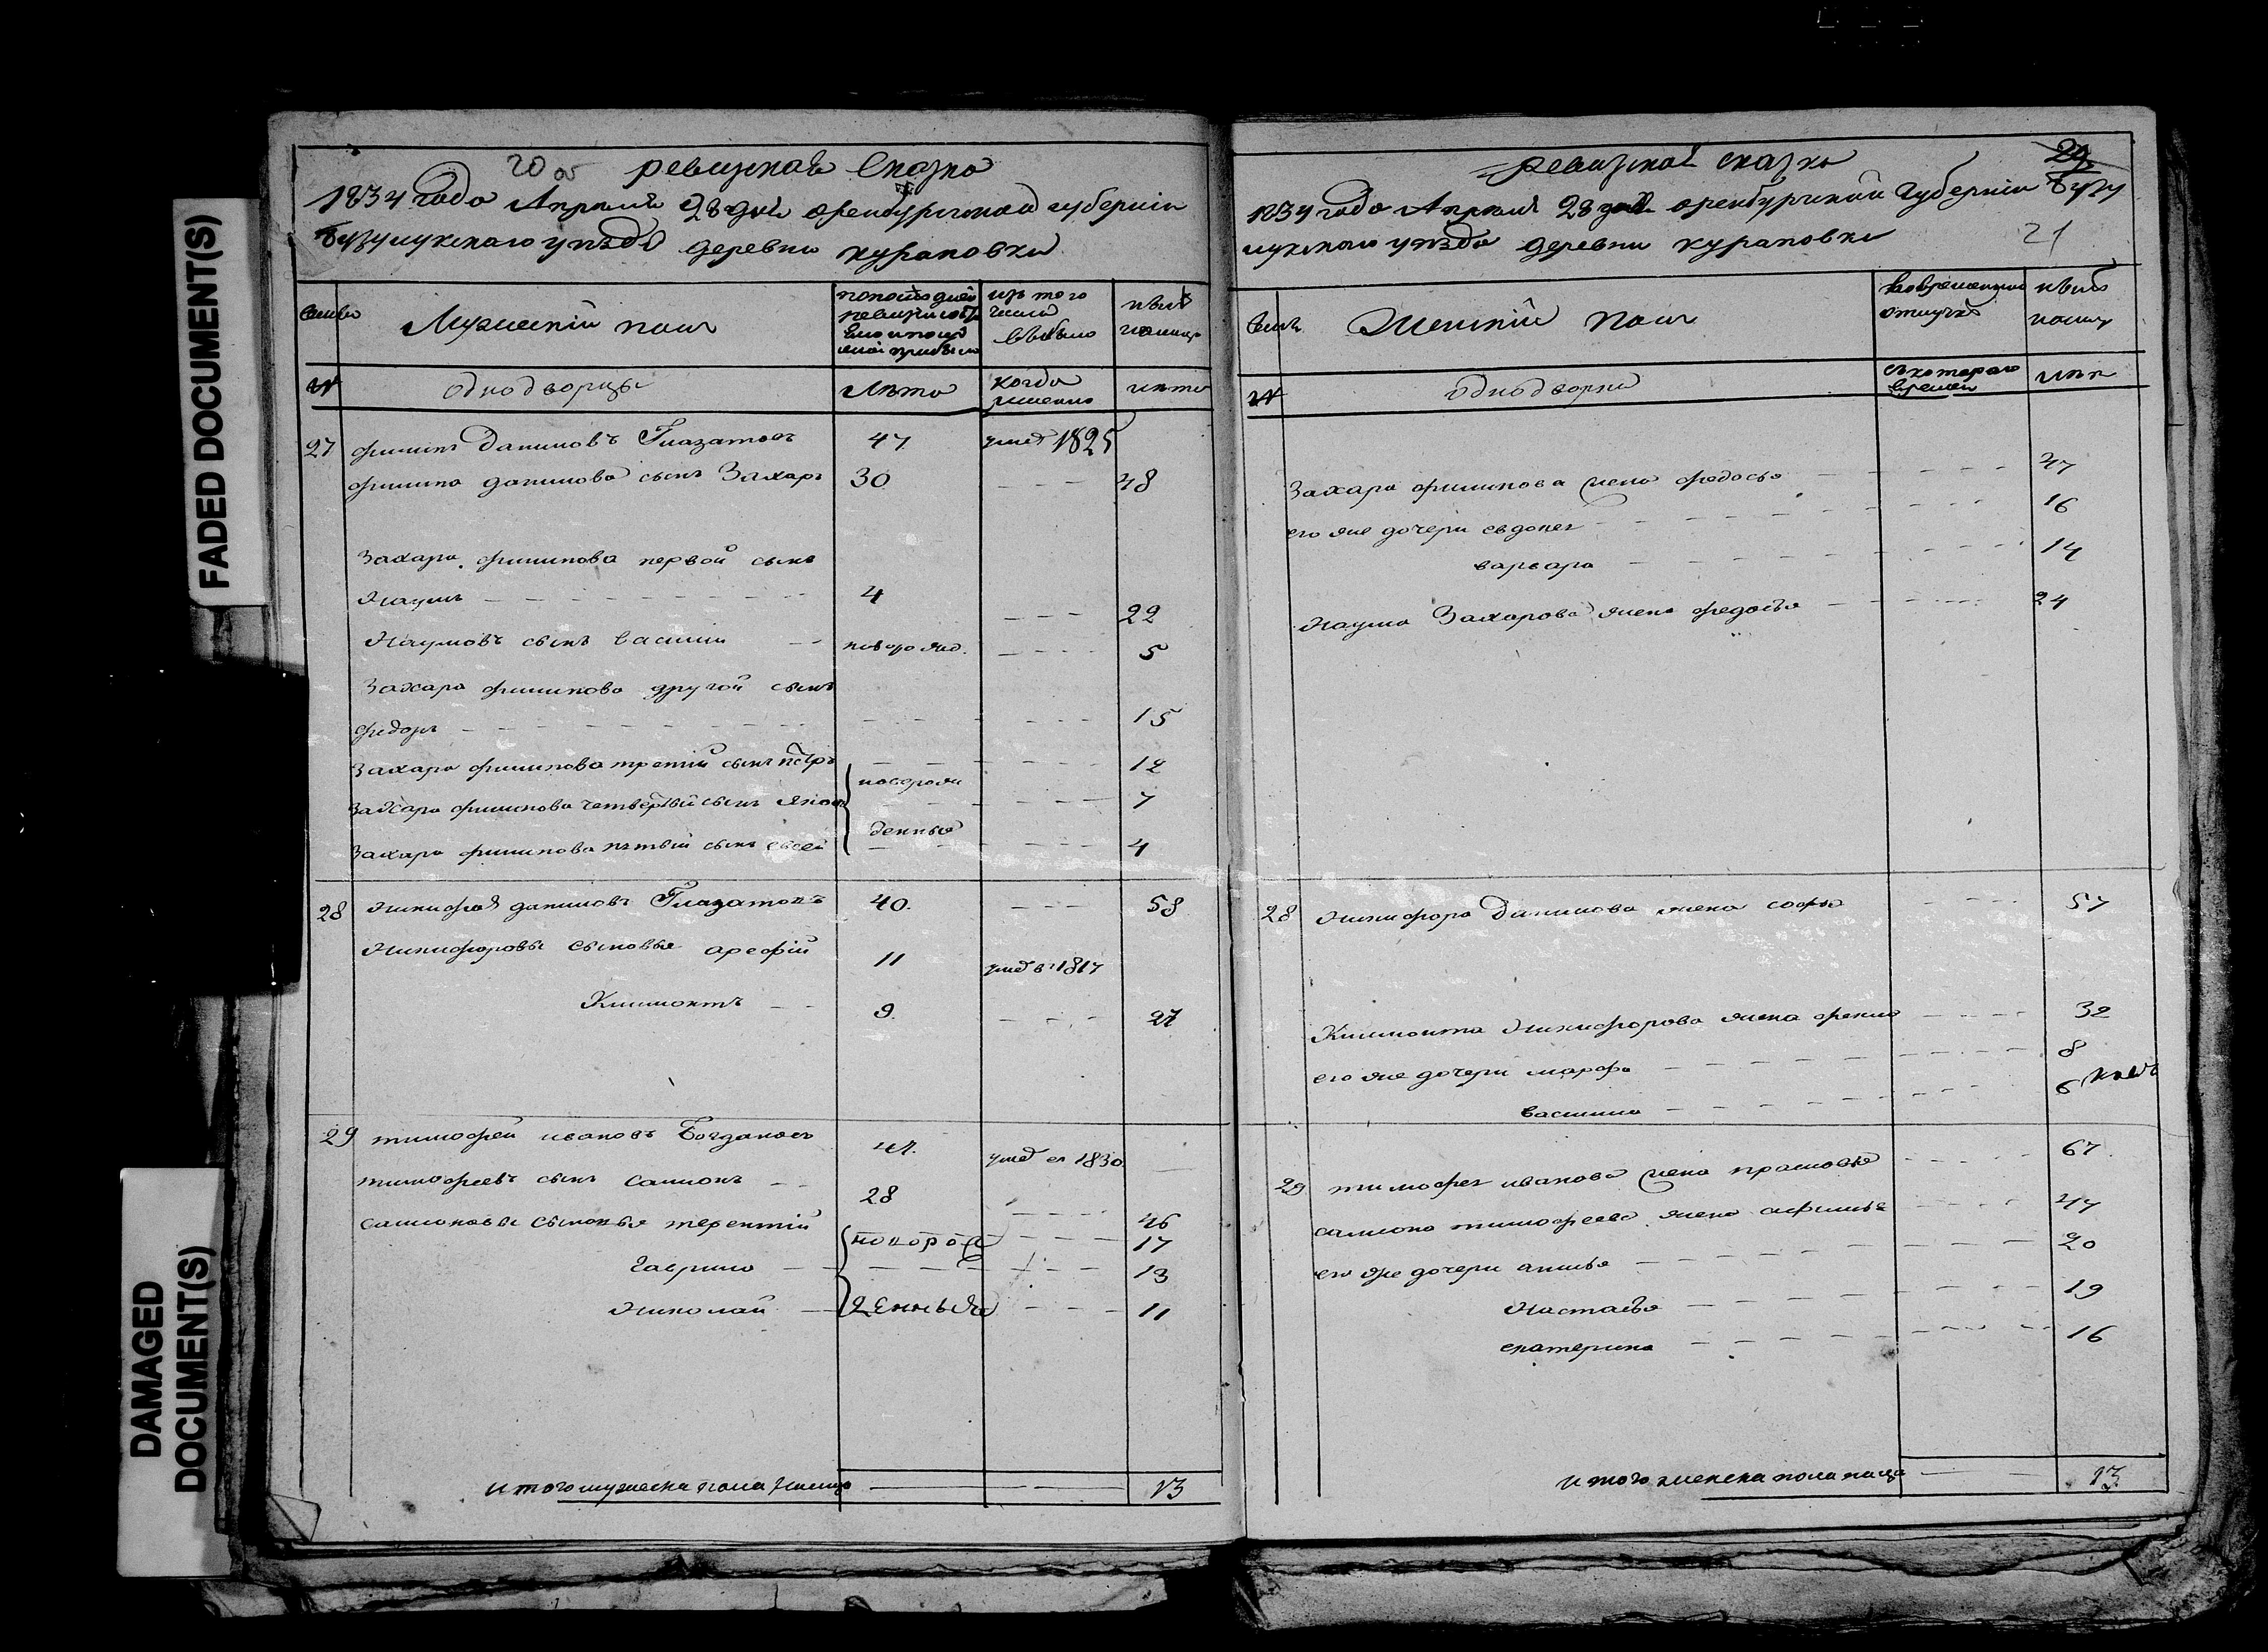 FADED DOCUMENT(S)
DAMAGED
DOCUMENT(S)
20 об
ревизская сказка
1834 года Апреля 28 дня оренбургской губернiи
Бузулукскаго уѣзда деревни кураповки
Мужескiй полъ
по последней
ревизiи
изъ того
числа
выбыло
нынѣ
налицо
№
однодворцы
лѣта
когда
именно
лѣта
27 филипъ Даниловъ Глазатовъ 47 умер 1825
филипа данилова сынъ Захаръ 30 48
Захара филипова первой сынъ
Наумъ 4 22
Наумовъ сынъ василiй новорожд. 5
Захара филипова другой сынъ
федоръ 15
Захара филипова третiй сынъ петръ 12
новорож
Захара филипова четвертый сынъ яковъ 7
денныя
Захара филипова пятый сынъ евсей 4
28 Никифоръ даниловъ Глазатовъ 40. 58
Никифоровы сыновья арефiй 11 умер в 1817
Климонтъ 9. 27
29 тимофей ивановъ Богдановъ 47. умер в 1830
тимофеевъ сынъ самсонъ 28 46
самсоновы сыновья терентiй новорож 17
гаврило 13
Николай денныя 11
итого мужеска пола налицо 13
ревизская сказка
29
1834 года Апреля 28 дня оренбургской Губернiи Бузу
лукскаго уѣзда деревни кураповки
21
Женскiй полъ
во временной
отлучке
нынѣ
налицо
№
однодворки
съ котораго
времени
лѣта
Захара филипова жена федосья 47
его же дочери евдокея 16
варвара 14
Наума Захарова жена федосья 24
28 Никифора Данилова жена софья 57
Климонта Никифорова жена 32
его же дочери марфа 8
василиса 6
29 тимофея иванова жена прасковья 67
самсона тимофеева жена афимья 47
его же дочери анисья 20
Настасья 19
екатерина 16
итого женска пола налицо 13